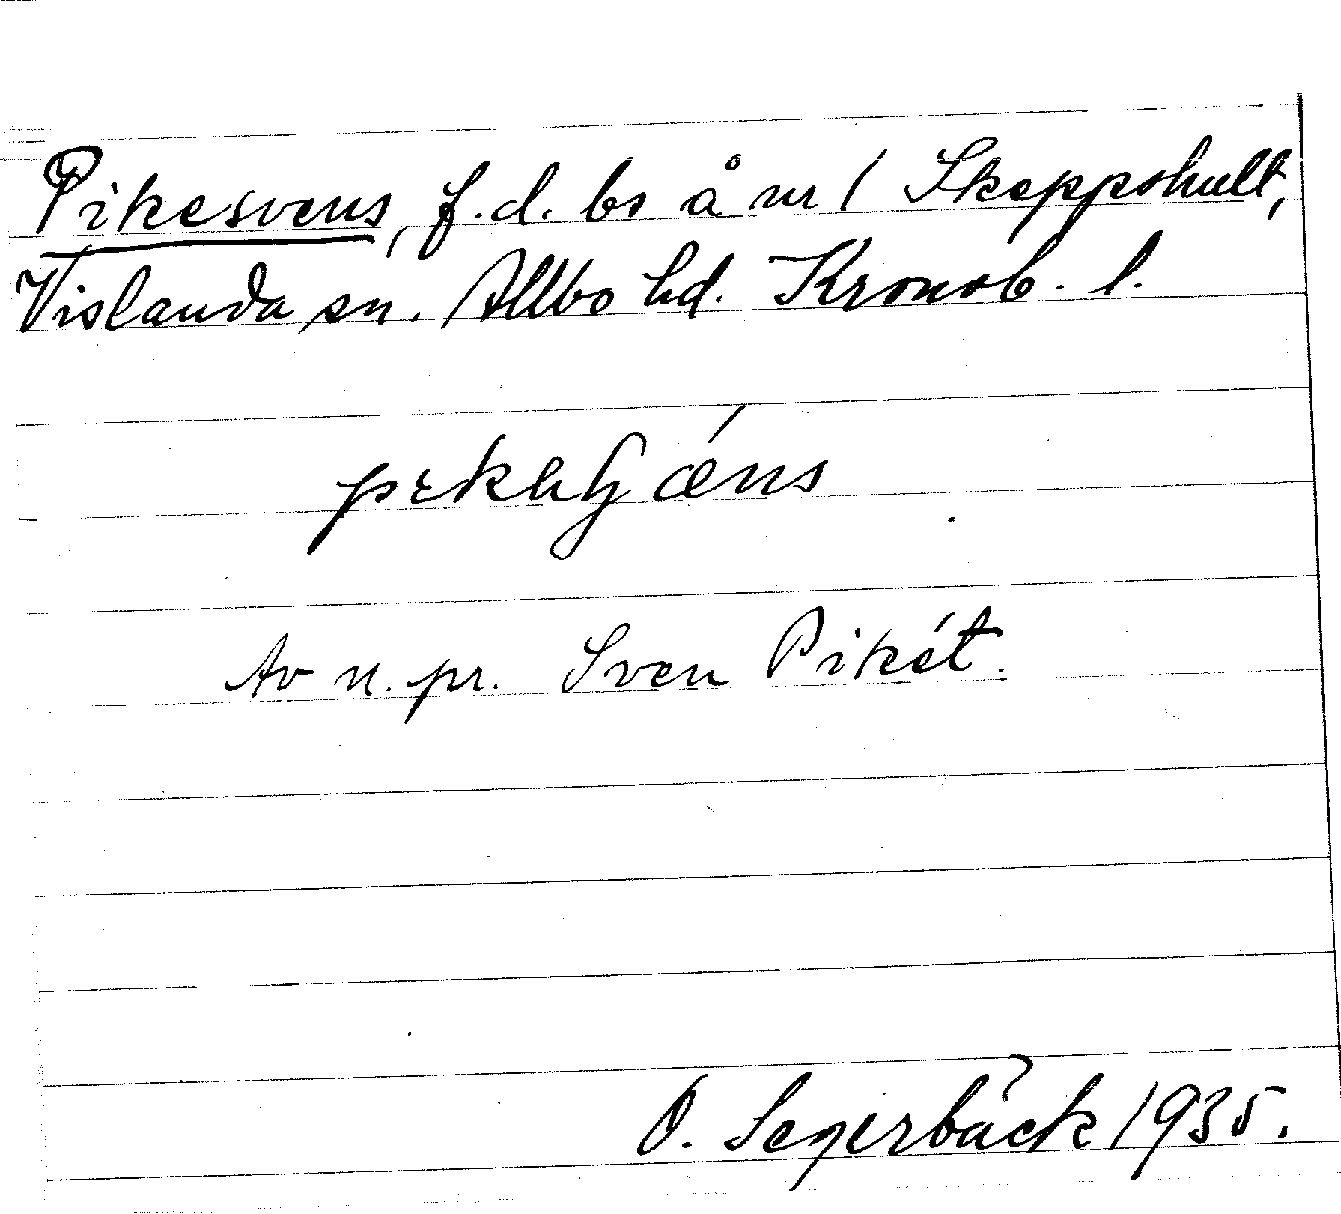 Pikesvens, f.d. bs å nr 1 Skeppshult,
Vislanda sn. Allbo hd. Kronob. l.
Av n. pr. Sven Pikét.
O. Segerbäck 1935.